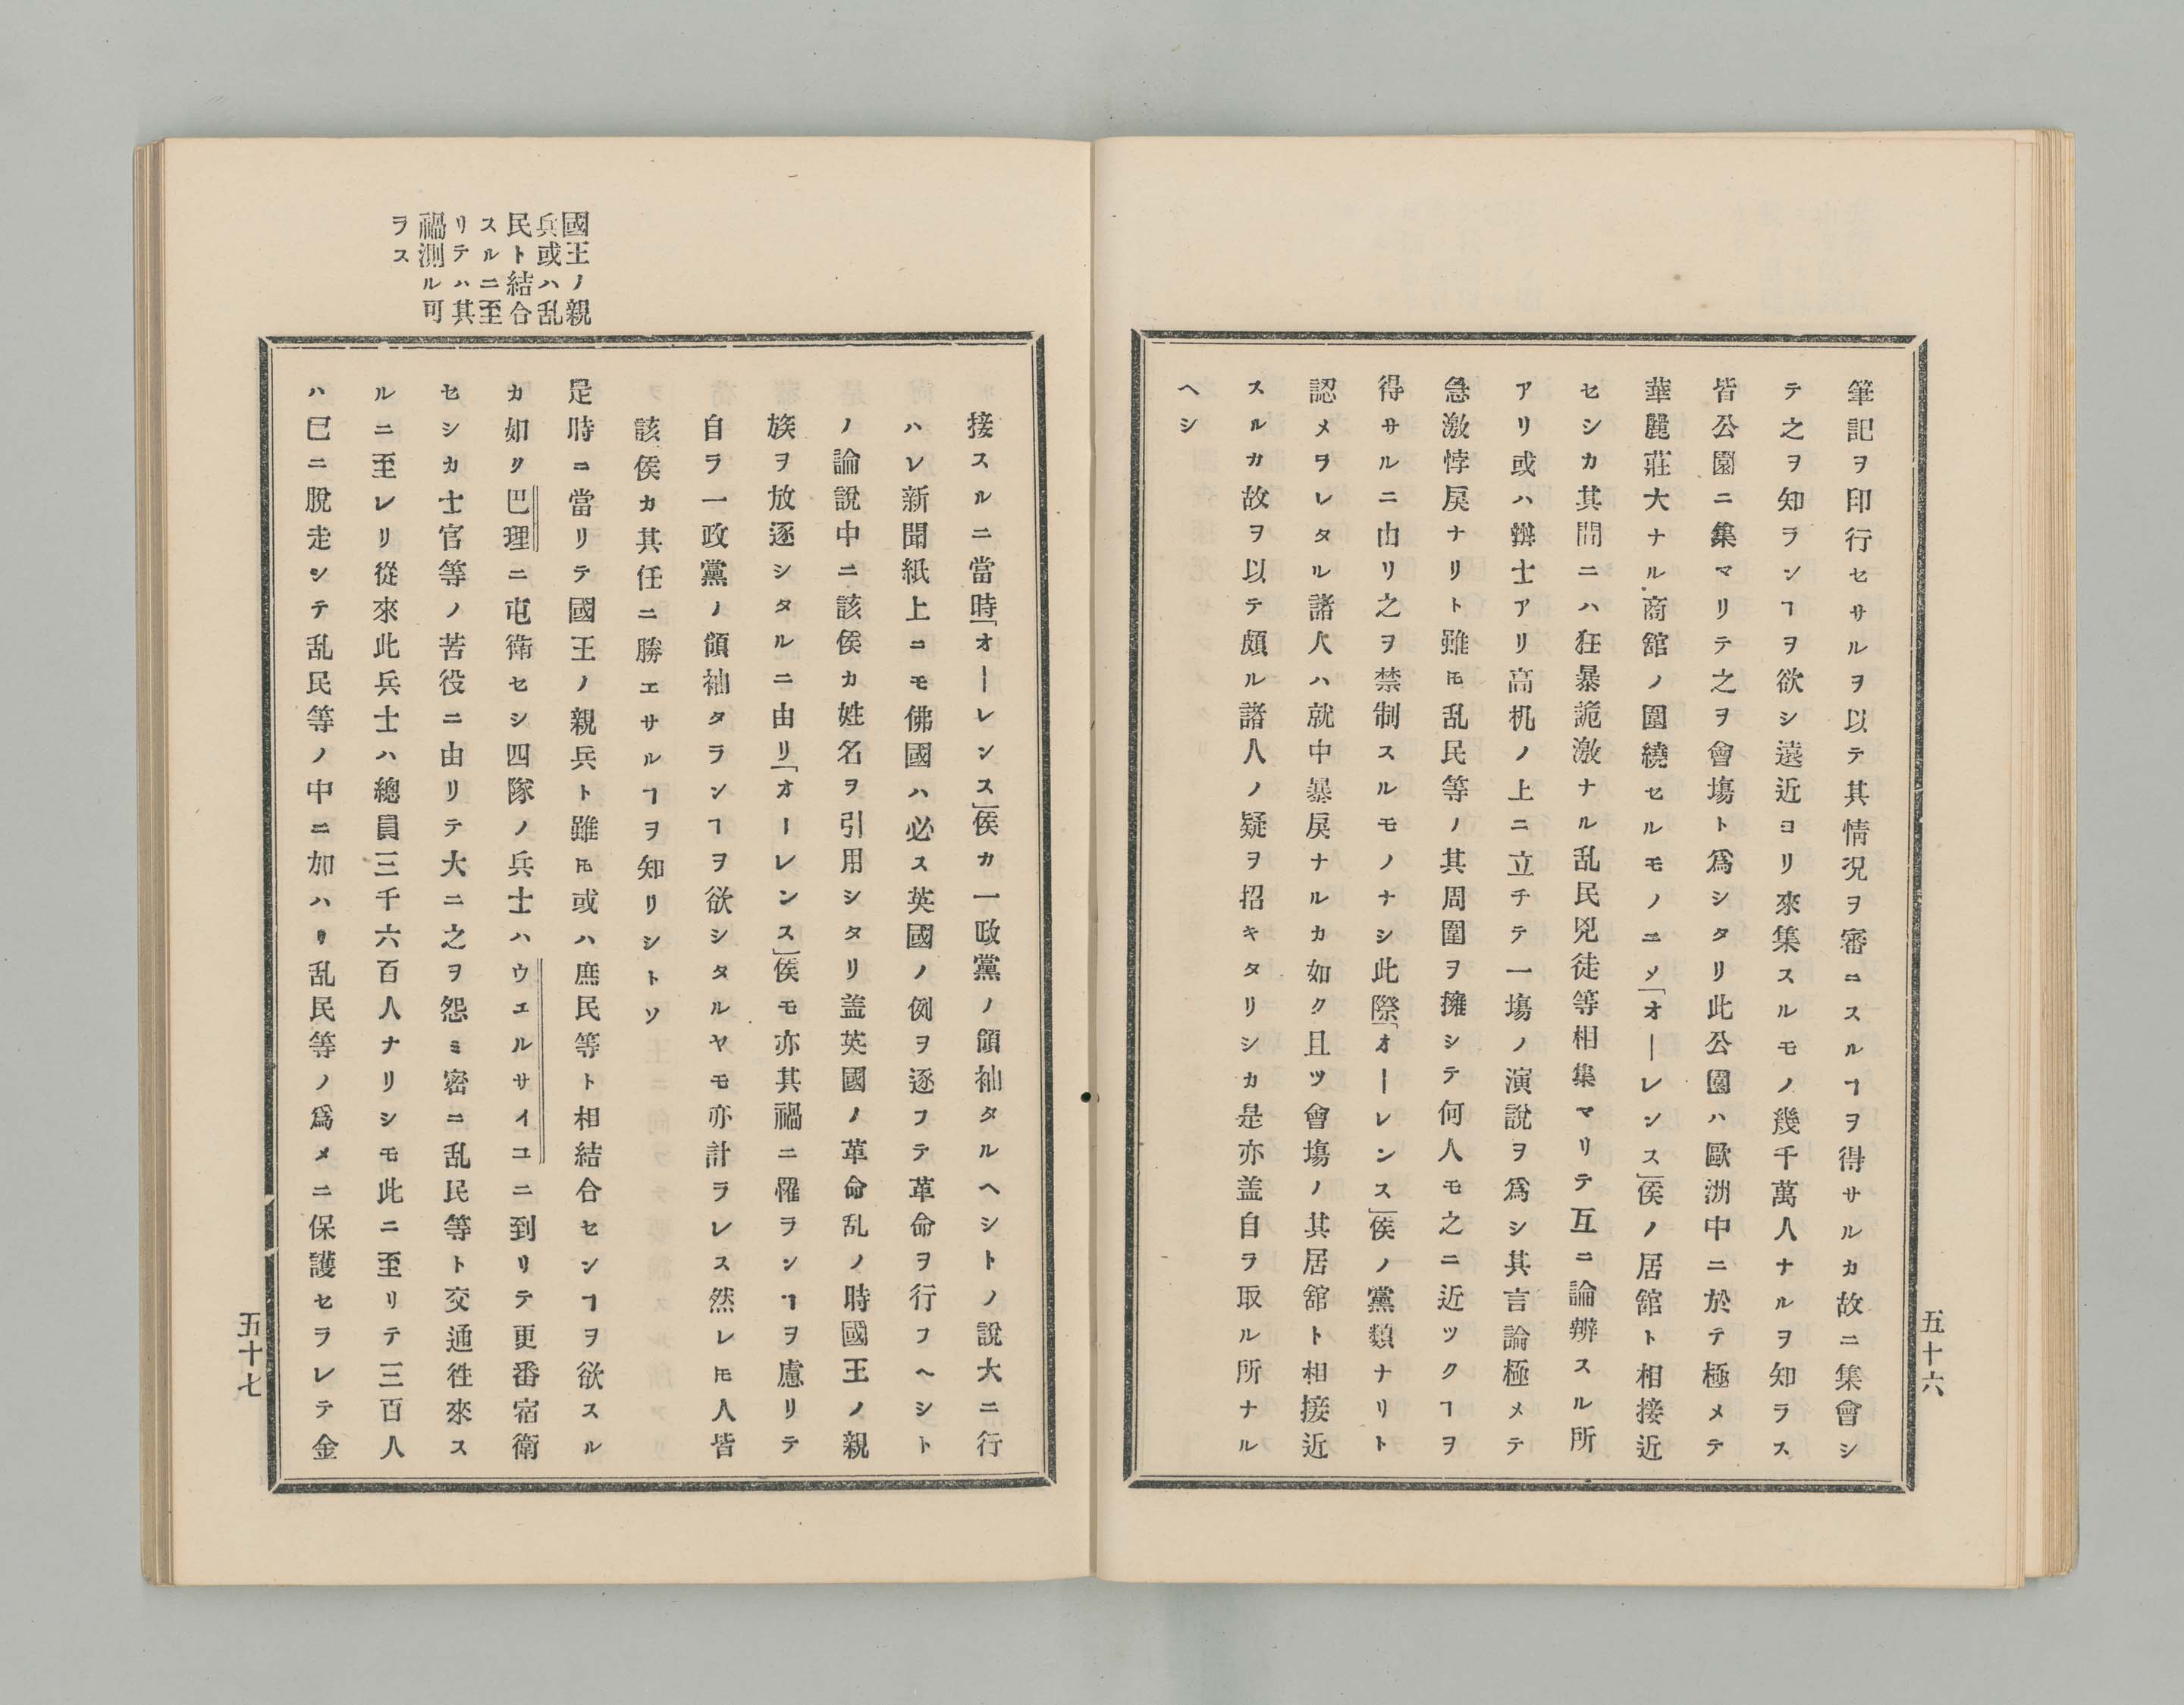 筆記ヲ印行セサルヲ以テ其情况ヲ審ニスルヿヲ得サルカ故ニ集會シ
テ之ヲ知ランヿヲ欲シ遠近ヨリ來集スルモノ幾千萬人ナルヲ知ラス
皆公園ニ集マリテ之ヲ會塲ト爲シタリ此公園ハ歐洲中ニ於テ極メテ
華麗莊大ナル商舘ノ圍繞セルモノニソ「オーレンス」侯ノ居舘ト相接近
セシカ其間ニハ狂暴詭激ナル乱民兇徒等相集マリテ互ニ論辨スル所
アリ或ハ辯士アリ高机ノ上ニ立チテ一塲ノ演說ヲ爲シ其言論極メテ
急激悖戾ナリト雖𪜈乱民等ノ其周圍ヲ擁シテ何人モ之ニ近ツクヿヲ
得サルニ由リ之ヲ禁制スルモノナシ此際「オーレンス」侯ノ黨類ナリト
認メヲレタル諸人ハ就中暴戾ナルカ如ク且ツ會塲ノ其居舘ト相接近
スルカ故ヲ以テ頗ル諸人ノ疑ヲ招キタリシカ是亦盖自ヲ取ル所ナル
ヘシ
五十六
國王ノ親
兵或ハ乱
民ト結合
スルニ至
リテハ其
禍測ル可
ヲス
接スルニ當時「オーレンス」侯カ一政黨ノ領袖タルヘシトノ說大ニ行
ハレ新聞紙上ニモ佛國ハ必ス英國ノ例ヲ逐フテ革命ヲ行フヘシト
ノ論說中ニ該侯カ姓名ヲ引用シタリ盖英國ノ革命乱ノ時國王ノ親
族ヲ放逐シタルニ由リ「オーレンス」侯モ亦其禍ニ罹ランヿヲ慮リテ
自ラ一政黨ノ領袖タランヿヲ欲シタルヤモ亦計ラレス然レ𪜈人皆
該侯カ其任ニ勝エサルヿヲ知リシトソ
是時ニ當リテ國王ノ親兵ト雖𪜈或ハ庶民等ト相結合センヿヲ欲スル
カ如ク巴理ニ屯衛セシ四隊ノ兵士ハウエルサイユニ到リテ更番宿衛
セシカ士官等ノ苦役ニ由リテ大ニ之ヲ怨ミ密ニ乱民等ト交通徃來ス
ルニ至レリ從來此兵士ハ總員三千六百人ナリシモ此ニ至リテ三百人
ハ已ニ脫走シテ乱民等ノ中ニ加ハリ乱民等ノ爲メニ保護セヲレテ金
五十七